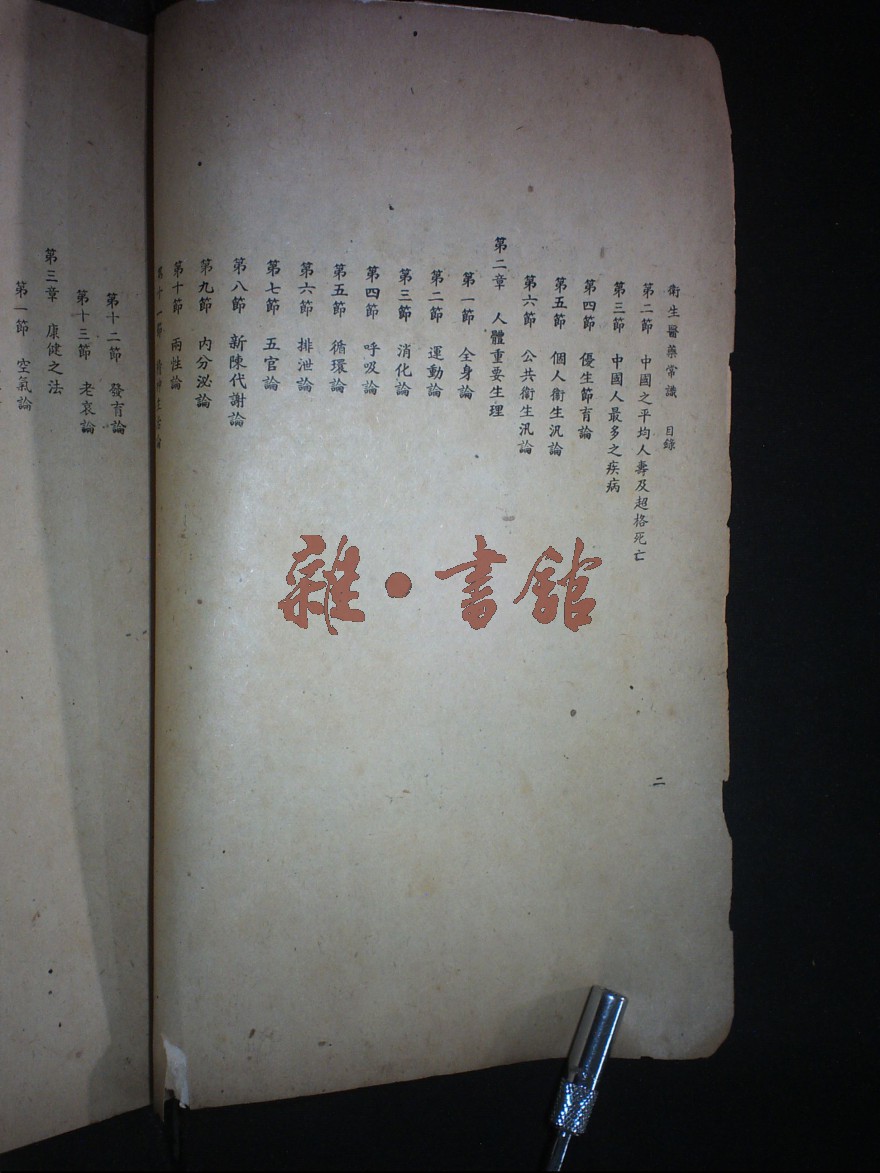 衛生醫藥常識 目錄
第二節 中國之平均人壽及超格死亡
第三節 中國人最多之疾病
第四節 優生節育論
第五節 個人衛生汎論
第六節 公共衛生汎論
第二章 人體重要生理
第一節 全身論
第二節 運動論
第三節 消化論
第四節 呼吸論
第五節 循環論
第六節 排泄論
第七節 五官論
第八節 新陳代謝論
第九節 內分泌論
第十節 兩性論
第十一節
二
第十二節 發育論
第十三節 老衰論
第三章 康健之法
第一節 空氣論
雜·書館